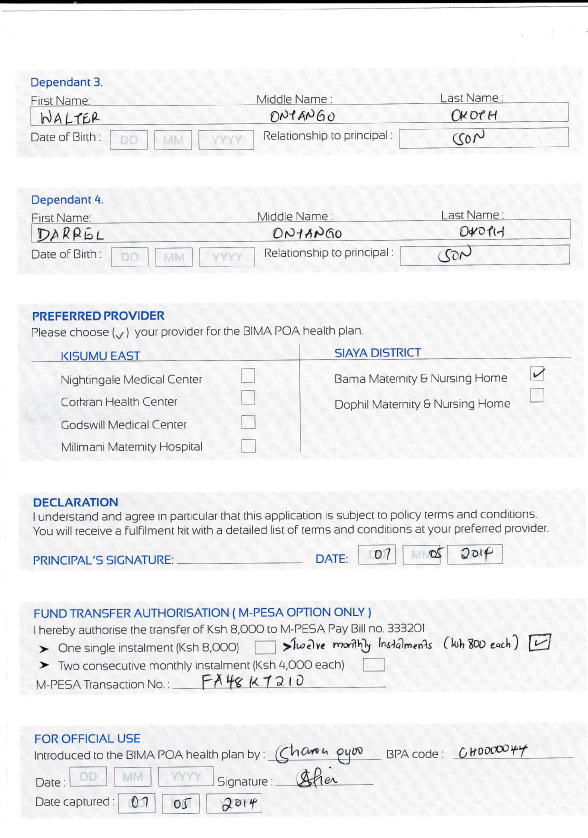 Dependant 3.
First Name: Middle Name : Last Name :
WALTER ONYANGO OKOTH
Date of Birth : DD MM YYYY Relationship to principal : SON
Dependant 4.
First Name: Middle Name : Last Name :
DARREL ONYANGO OKOTH
Date of Birth : DD MM YYYY Relationship to principal : SON
PREFERRED PROVIDER
Please choose (✓) your provider for the BIMA POA health plan.
KISUMU EAST SIAYA DISTRICT
Nightingale Medical Center Bama Maternity & Nursing Home ✓
Corkran Health Center Dophil Maternity & Nursing Home
Godswill Medical Center
Milimani Maternity Hospital
DECLARATION
I understand and agree in particular that this application is subject to policy terms and conditions.
You will receive a fulfilment kit with a detailed list of terms and conditions at your preferred provider.
PRINCIPAL'S SIGNATURE: DATE: 07 05 2014
FUND TRANSFER AUTHORISATION ( M-PESA OPTION ONLY )
I hereby authorise the transfer of Ksh 8,000 to M-PESA Pay Bill no. 333201
➤ One single instalment (Ksh 8,000) >Twelve monthly Instalments (ksh 800 each) ✓
➤ Two consecutive monthly instalment (Ksh 4,000 each)
M-PESA Transaction No. : FA48K7210
FOR OFFICIAL USE
Introduced to the BIMA POA health plan by : Sharon oyoo BPA code : CH0000044
Date : DD MM YYYY Signature :
Date captured : 07 05 2014